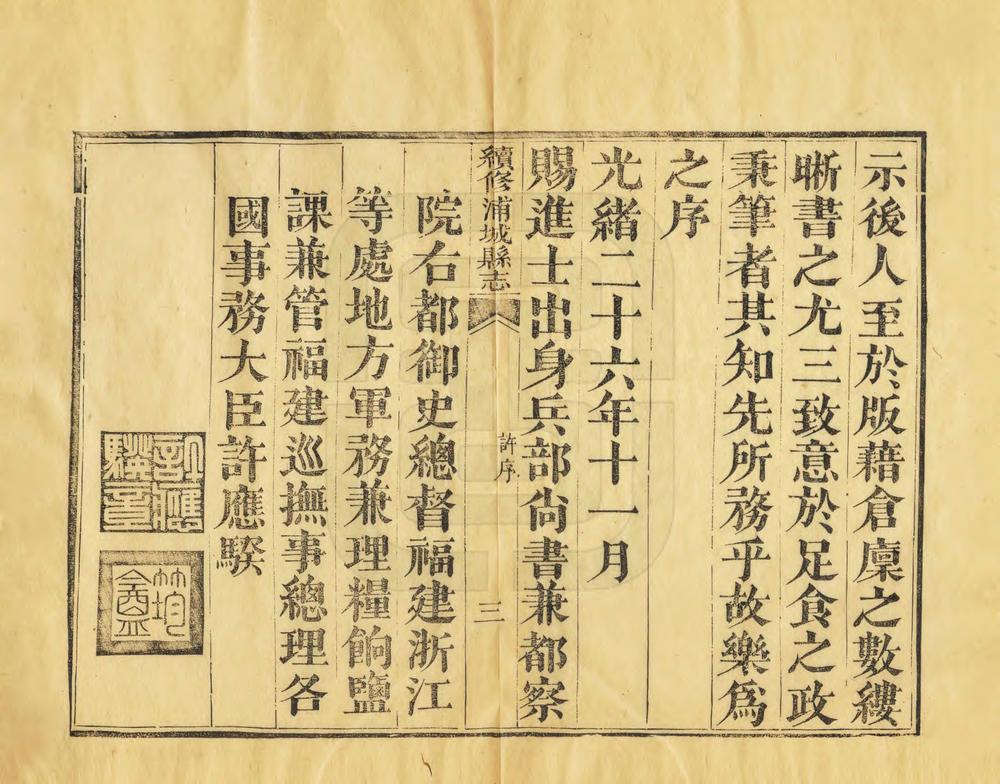 示後人至於版藉倉廩之數縷
晰書之尤三致意於足食之政
秉筆者其知先所務乎故樂爲
之序
光緒二十六年十一月
賜進士出身兵部尙書兼都察
續修浦城縣志
許序
三
院右都御史總督福建浙江
等處地方軍務兼理糧餉鹽
課兼管福建巡撫事總理各
國事務大臣許應騤
許應騤印
筠盦